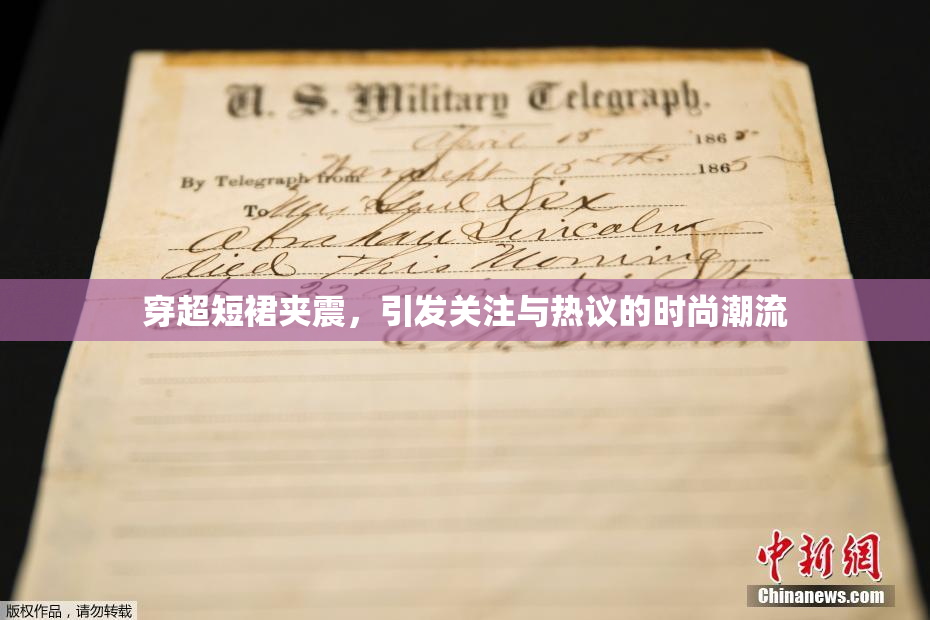 U. S. Military Telegraph.
April 15 1865
By Telegraph from War Dept 15th 1865
To Maj Genl Dix
Abraham Lincoln
died This Morning
at 22 minutes after
穿超短裙夹震，引发关注与热议的时尚潮流
E. M. Stanton
中新网
Chinanews.com
版权作品，请勿转载